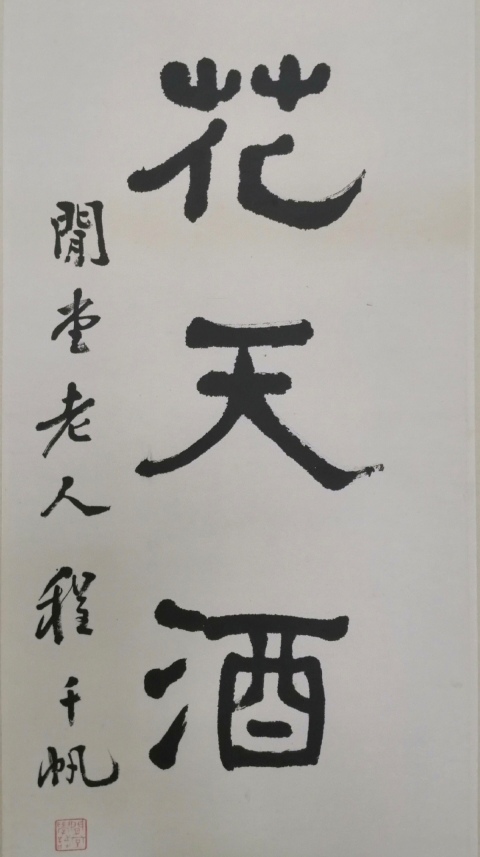 花天酒
閒堂老人 程千帆